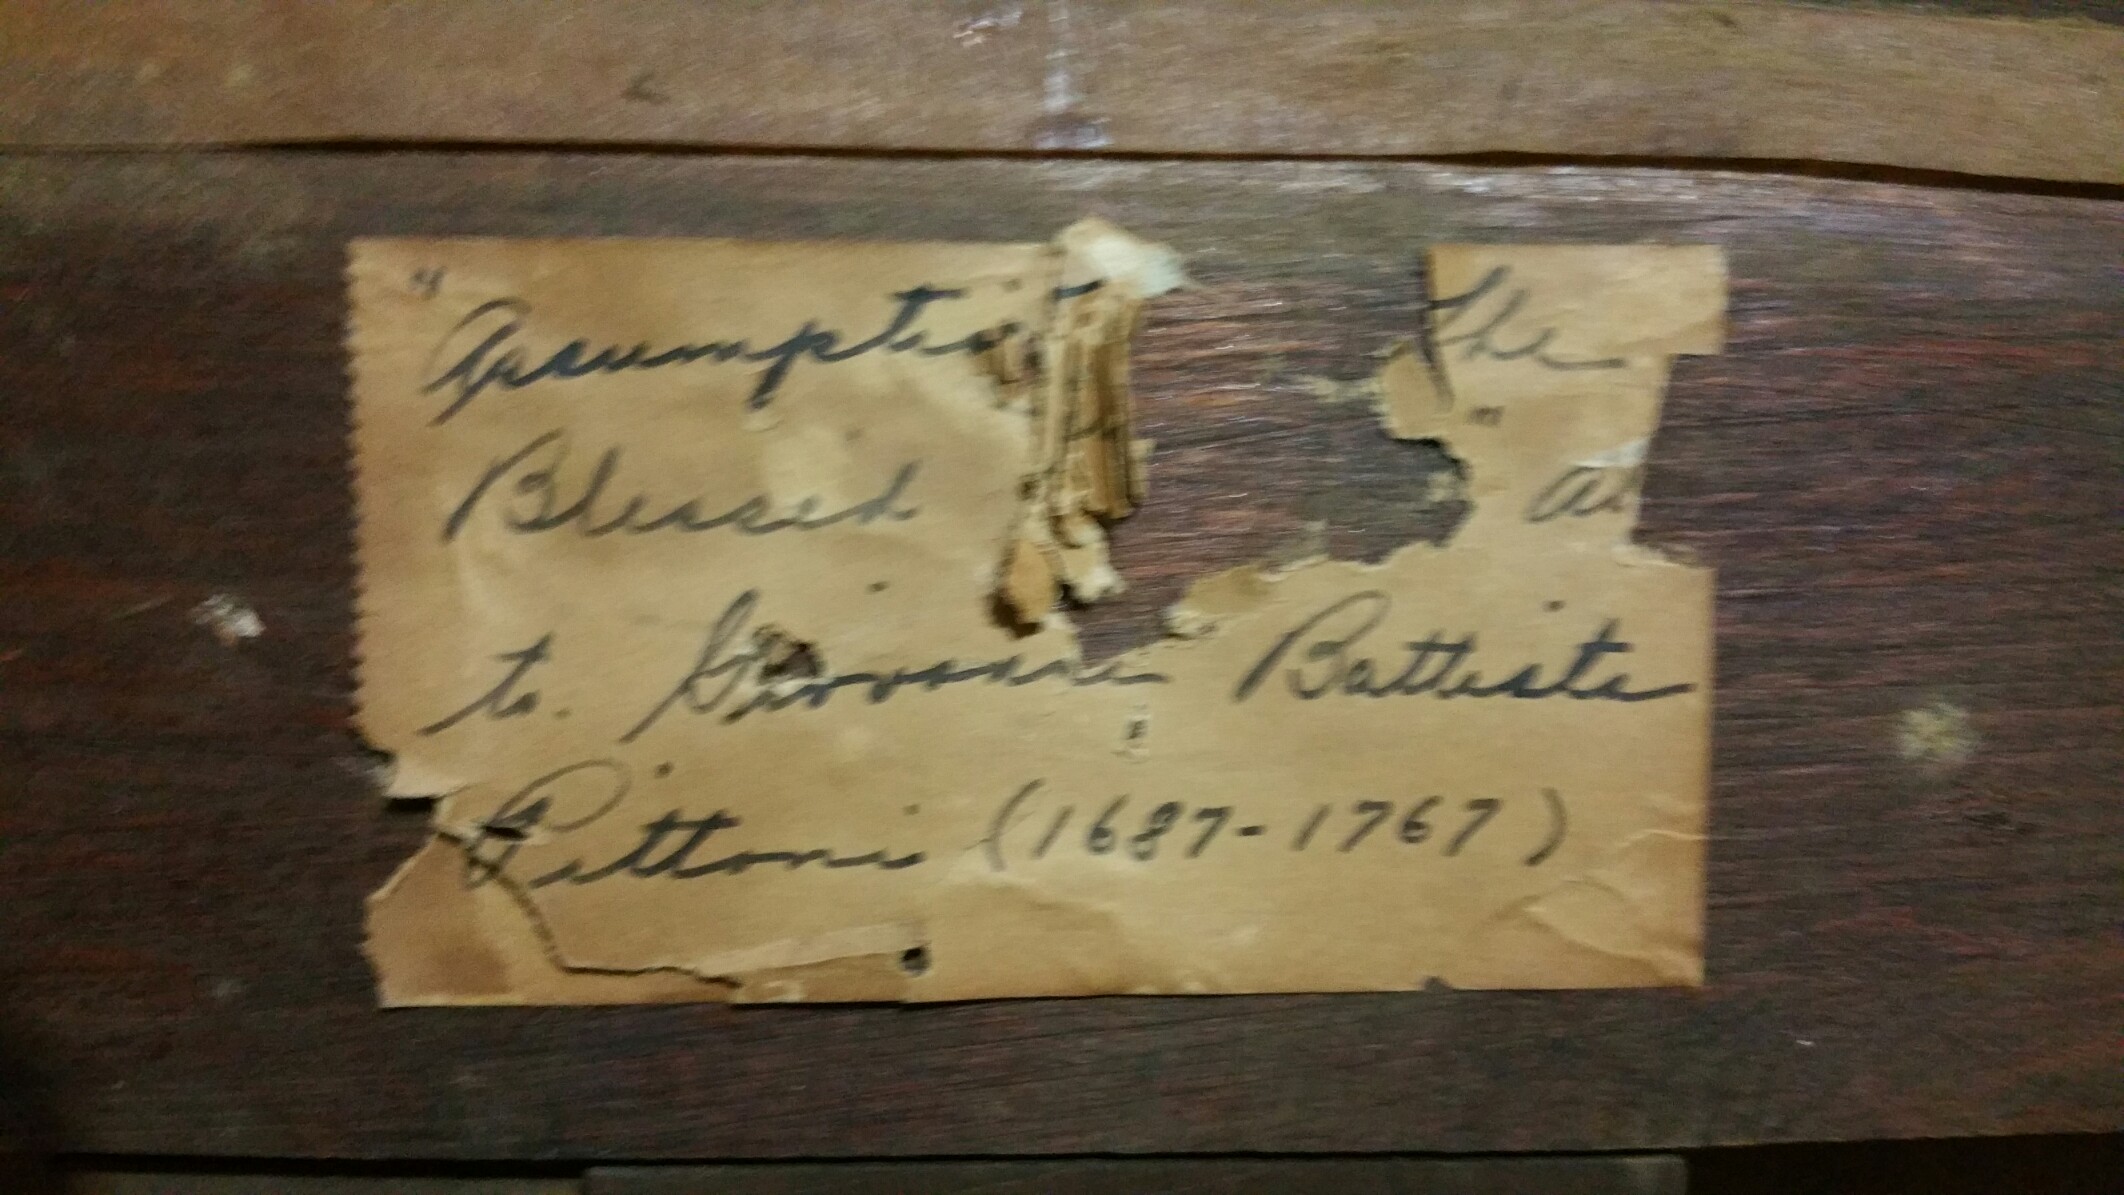 "Assumptio The
Blessed " at
to. Giovanni Battista
Pittoni (1687-1767)